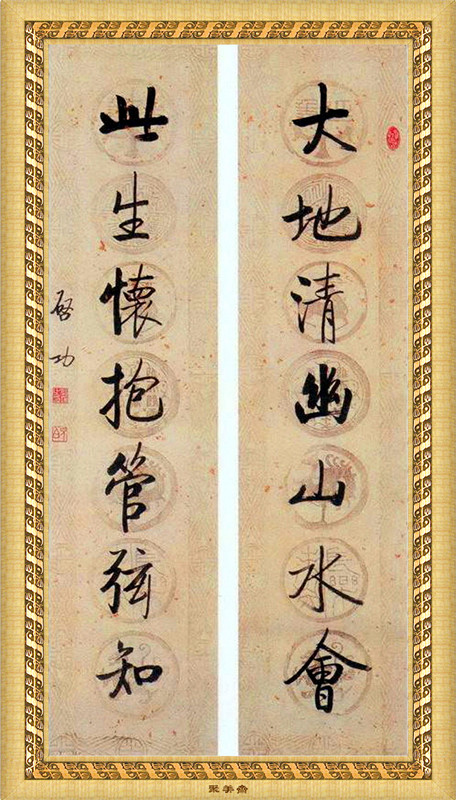 大地清幽山水會
此生懷抱管弦知
啓功
聚美齋